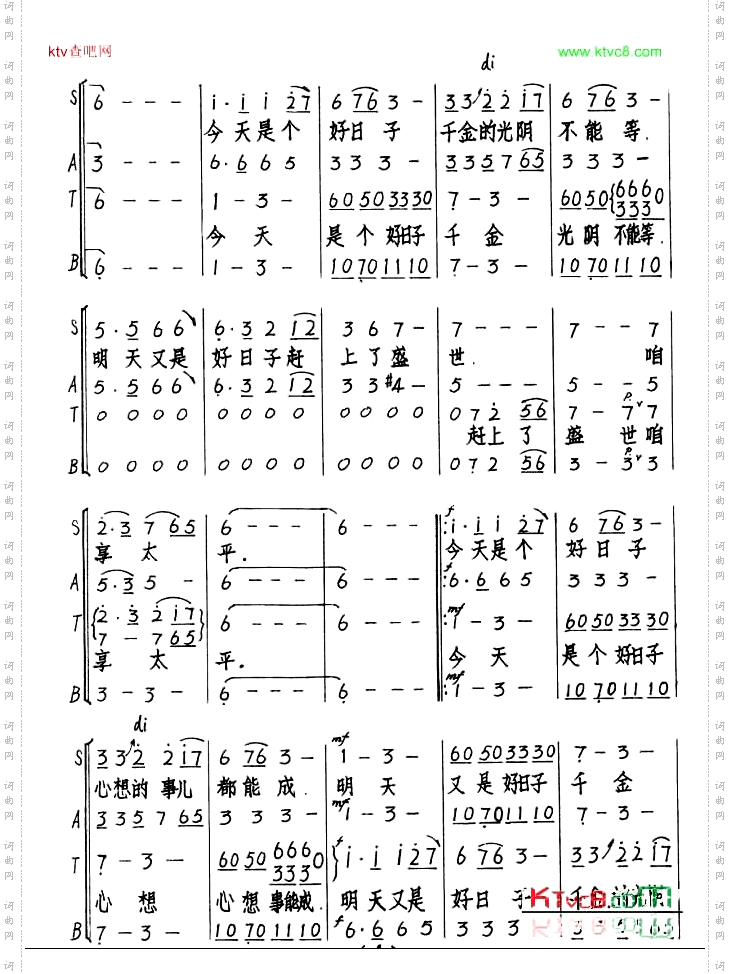 ktv查吧网
www.ktvc8.com
di
S 6 - - - i · i i 27 6 76 3 - 33 2 2 i7 6 76 3 -
今天是个 好日子 千金的光阴 不能等.
A 3 - - - 6 · 6 6 5 3 3 3 - 3 3 5 7 65 3 3 3 -
T 6 - - - 1 - 3 - 60 50 33 30 7 - 3 - 60 50 {666 0 333
今天 是个好日子 千金 光阴不能等.
B 6 - - - 1 - 3 - 10 70 11 10 7 - 3 - 10 70 11 10
S 5 · 5 6 6 6 · 3 2 12 3 6 7 - 7 - - - 7 - - 7
明天又是 好日子赶 上了盛 世. 咱
A 5 · 5 6 6 6 · 3 2 12 3 3 #4 - 5 - - - 5 - - 5
T 0 0 0 0 0 0 0 0 0 0 0 0 0 7 2 56 7 - 7 7
赶上了 盛世咱
B 0 0 0 0 0 0 0 0 0 0 0 0 0 7 2 56 3 - 3 3
S 2 · 3 7 65 6 - - - 6 - - - f i · i i 27 6 76 3 -
享太 平. 今天是个 好日子
A 5 · 3 5 - 6 - - - 6 - - - f 6 · 6 6 5 3 3 3 -
T {2 · 3 2 i7 7 - 7 65} 6 - - - 6 - - - mf 1 - 3 - 60 50 33 30
享太 平. 今天 是个好日子
B 3 - 3 - 6 - - - 6 - - - mf 1 - 3 - 10 70 11 10
di
S 33 2 2 i7 6 76 3 - mf 1 - 3 - 60 50 33 30 7 - 3 -
心想的事儿 都能成. 明天 又是好日子 千金
A 3 3 5 7 65 3 3 3 - mf 1 - 3 - 10 70 11 10 7 - 3 -
T 7 - 3 - 60 50 666 0 333 f i · i i 27 6 76 3 - 33 2 2 i7
心想 心想事能成. 明天又是 好日子
B 7 - 3 - 10 70 11 10 f 6 · 6 6 5 3 3 3
KTvc8.com
词曲网